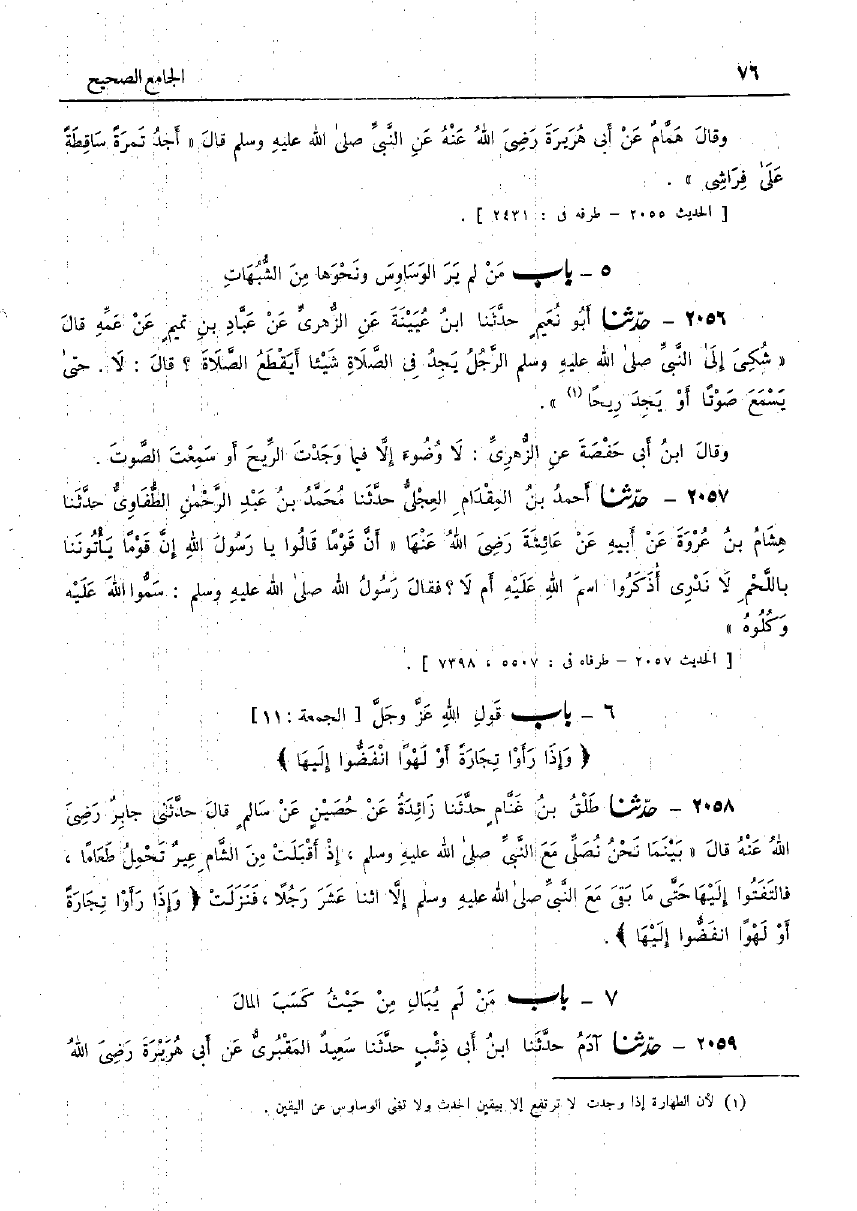 ٧٦ الجامع الصحيح
وقالَ هَمَّامٌ عَنْ أبى هُرَيرَةَ رَضِىَ اللهُ عَنْهُ عَنِ النَّبىِّ صلىٰ الله عليهِ وسلم قالَ « أَجدُ تَمرَةً سَاقِطَةً
عَلَىٰ فِرَاشِى » .
[ الحديث ٢٠٥٥ – طرفه فى : ٢٤٣١ ] .
٥ – باب مَنْ لم يَرَ الوَسَاوِسَ ونَحْوَها مِنَ الشُّبُهَاتِ
٢٠٥٦ – حدّثنا أَبُو نُعَيمٍ حدّثَنا ابنُ عُيَيْنَةَ عَنِ الزُّهرىِّ عَنْ عَبَّادِ بنِ تميمٍ عَنْ عَمِّهِ قالَ
« شُكِىَ إِلَىٰ النَّبىِّ صلىٰ الله عليهِ وسلم الرَّجُلُ يَجدُ فِى الصَّلاةِ شَيْئا أَيَقْطَعُ الصَّلَاةَ ؟ قالَ : لَا . حتىٰ
يَسْمَعَ صَوْتًا أَوْ يَجِدَ رِيحًا (١) » .
وقالَ ابنُ أبى حَفْصَةَ عنِ الزُّهرِىِّ : لَا وُضُوءَ إِلَّا فيما وَجَدْتَ الرِّيحَ أو سَمِعْتَ الصَّوتَ .
٢٠٥٧ – حدّثنا أَحمدُ بنُ المِقْدَامِ العِجلىُّ حدّثَنا مُحَمَّدُ بنُ عَبْدِ الرَّحْمٰنِ الطُّفَاوِىُّ حدّثَنا
هِشَامُ بنُ عُرْوَةَ عَنْ أَبيهِ عَنْ عَائِشَةَ رَضِىَ اللهُ عَنْهَا « أَنَّ قَوْمًا قَالُوا يا رَسُولَ اللهِ إِنَّ قَوْمًا يَأْتُونَنا
بِاللَّحْمِ لَا نَدْرِى أَذَكَرُوا اسمَ اللهِ عَلَيْهِ أم لَا ؟ فقالَ رَسُولُ الله صلىٰ الله عليهِ وسلم : سَمُّوا اللهَ عَلَيْه
وَكُلُوهُ »
[ الحديث ٢٠٥٧ – طرفاه فى : ٥٥٠٧ ، ٧٣٩٨ ] .
٦ – باب قَولِ اللهِ عَزَّ وجَلَّ [ الجمعة : ١١]
﴿ وَإِذَا رَأَوْا تِجَارَةً أَوْ لَهْوًا انْفَضُّوا إِلَيهَا ﴾
٢٠٥٨ – حدّثنا طَلْقُ بنُ غَنَّامٍ حدّثَنا زَائِدَةُ عَنْ حُصَيْنٍ عَنْ سَالمٍ قالَ حدّثَنى جابِرٌ رَضِىَ
اللهُ عَنْهُ قالَ « بَيْنَمَا نَحْنُ نُصَلِّى مَعَ النَّبىِّ صلىٰ الله عليهِ وسلم ، إِذْ أَقْبَلَتْ مِنَ الشَّامِ عِيرٌ تَحْمِلُ طَعَامًا ،
فالتَفَتُوا إِلَيْهَا حَتَّى مَا بَقىَ مَعَ النَّبىِّ صلىٰ الله عليهِ وسلم إِلَّا اثنا عَشَرَ رَجُلًا ، فَنَزَلَتْ ﴿ وَإِذَا رَأَوْا تِجَارَةً
أَوْ لَهْوًا انفَضُّوا إِلَيْهَا ﴾ .
٧ – باب مَنْ لَم يُبَالِ مِنْ حَيْثُ كَسَبَ المالَ
٢٠٥٩ – حدّثنا آدَمُ حدّثَنا ابنُ أبى ذِئْبٍ حدّثَنا سَعِيدٌ المَقْبُرىُّ عَن أبى هُرَيْرَةَ رَضِىَ اللهُ
(١) لأن الطهارة إذا وجدت لا ترتفع إلا بيقين الحدث ولا تغنى الوساوس عن اليقين .